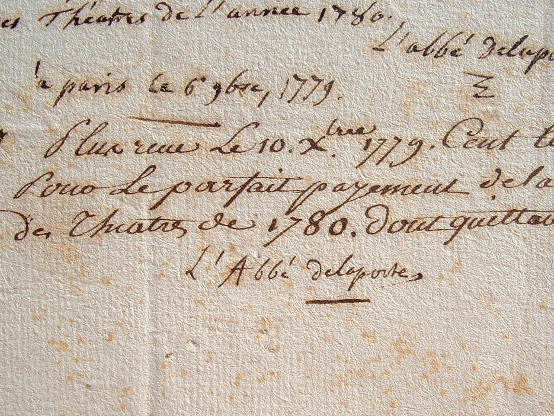 es Théatres de l'année 1780.
L'abbé delapo
à paris le 6 9bre, 1779.
Plus reçu Le 10. Xbre 1779. Cent
Pour Le parfait payement de la
des Théatres de 1780. dont quittan
L'Abbé delaporte,